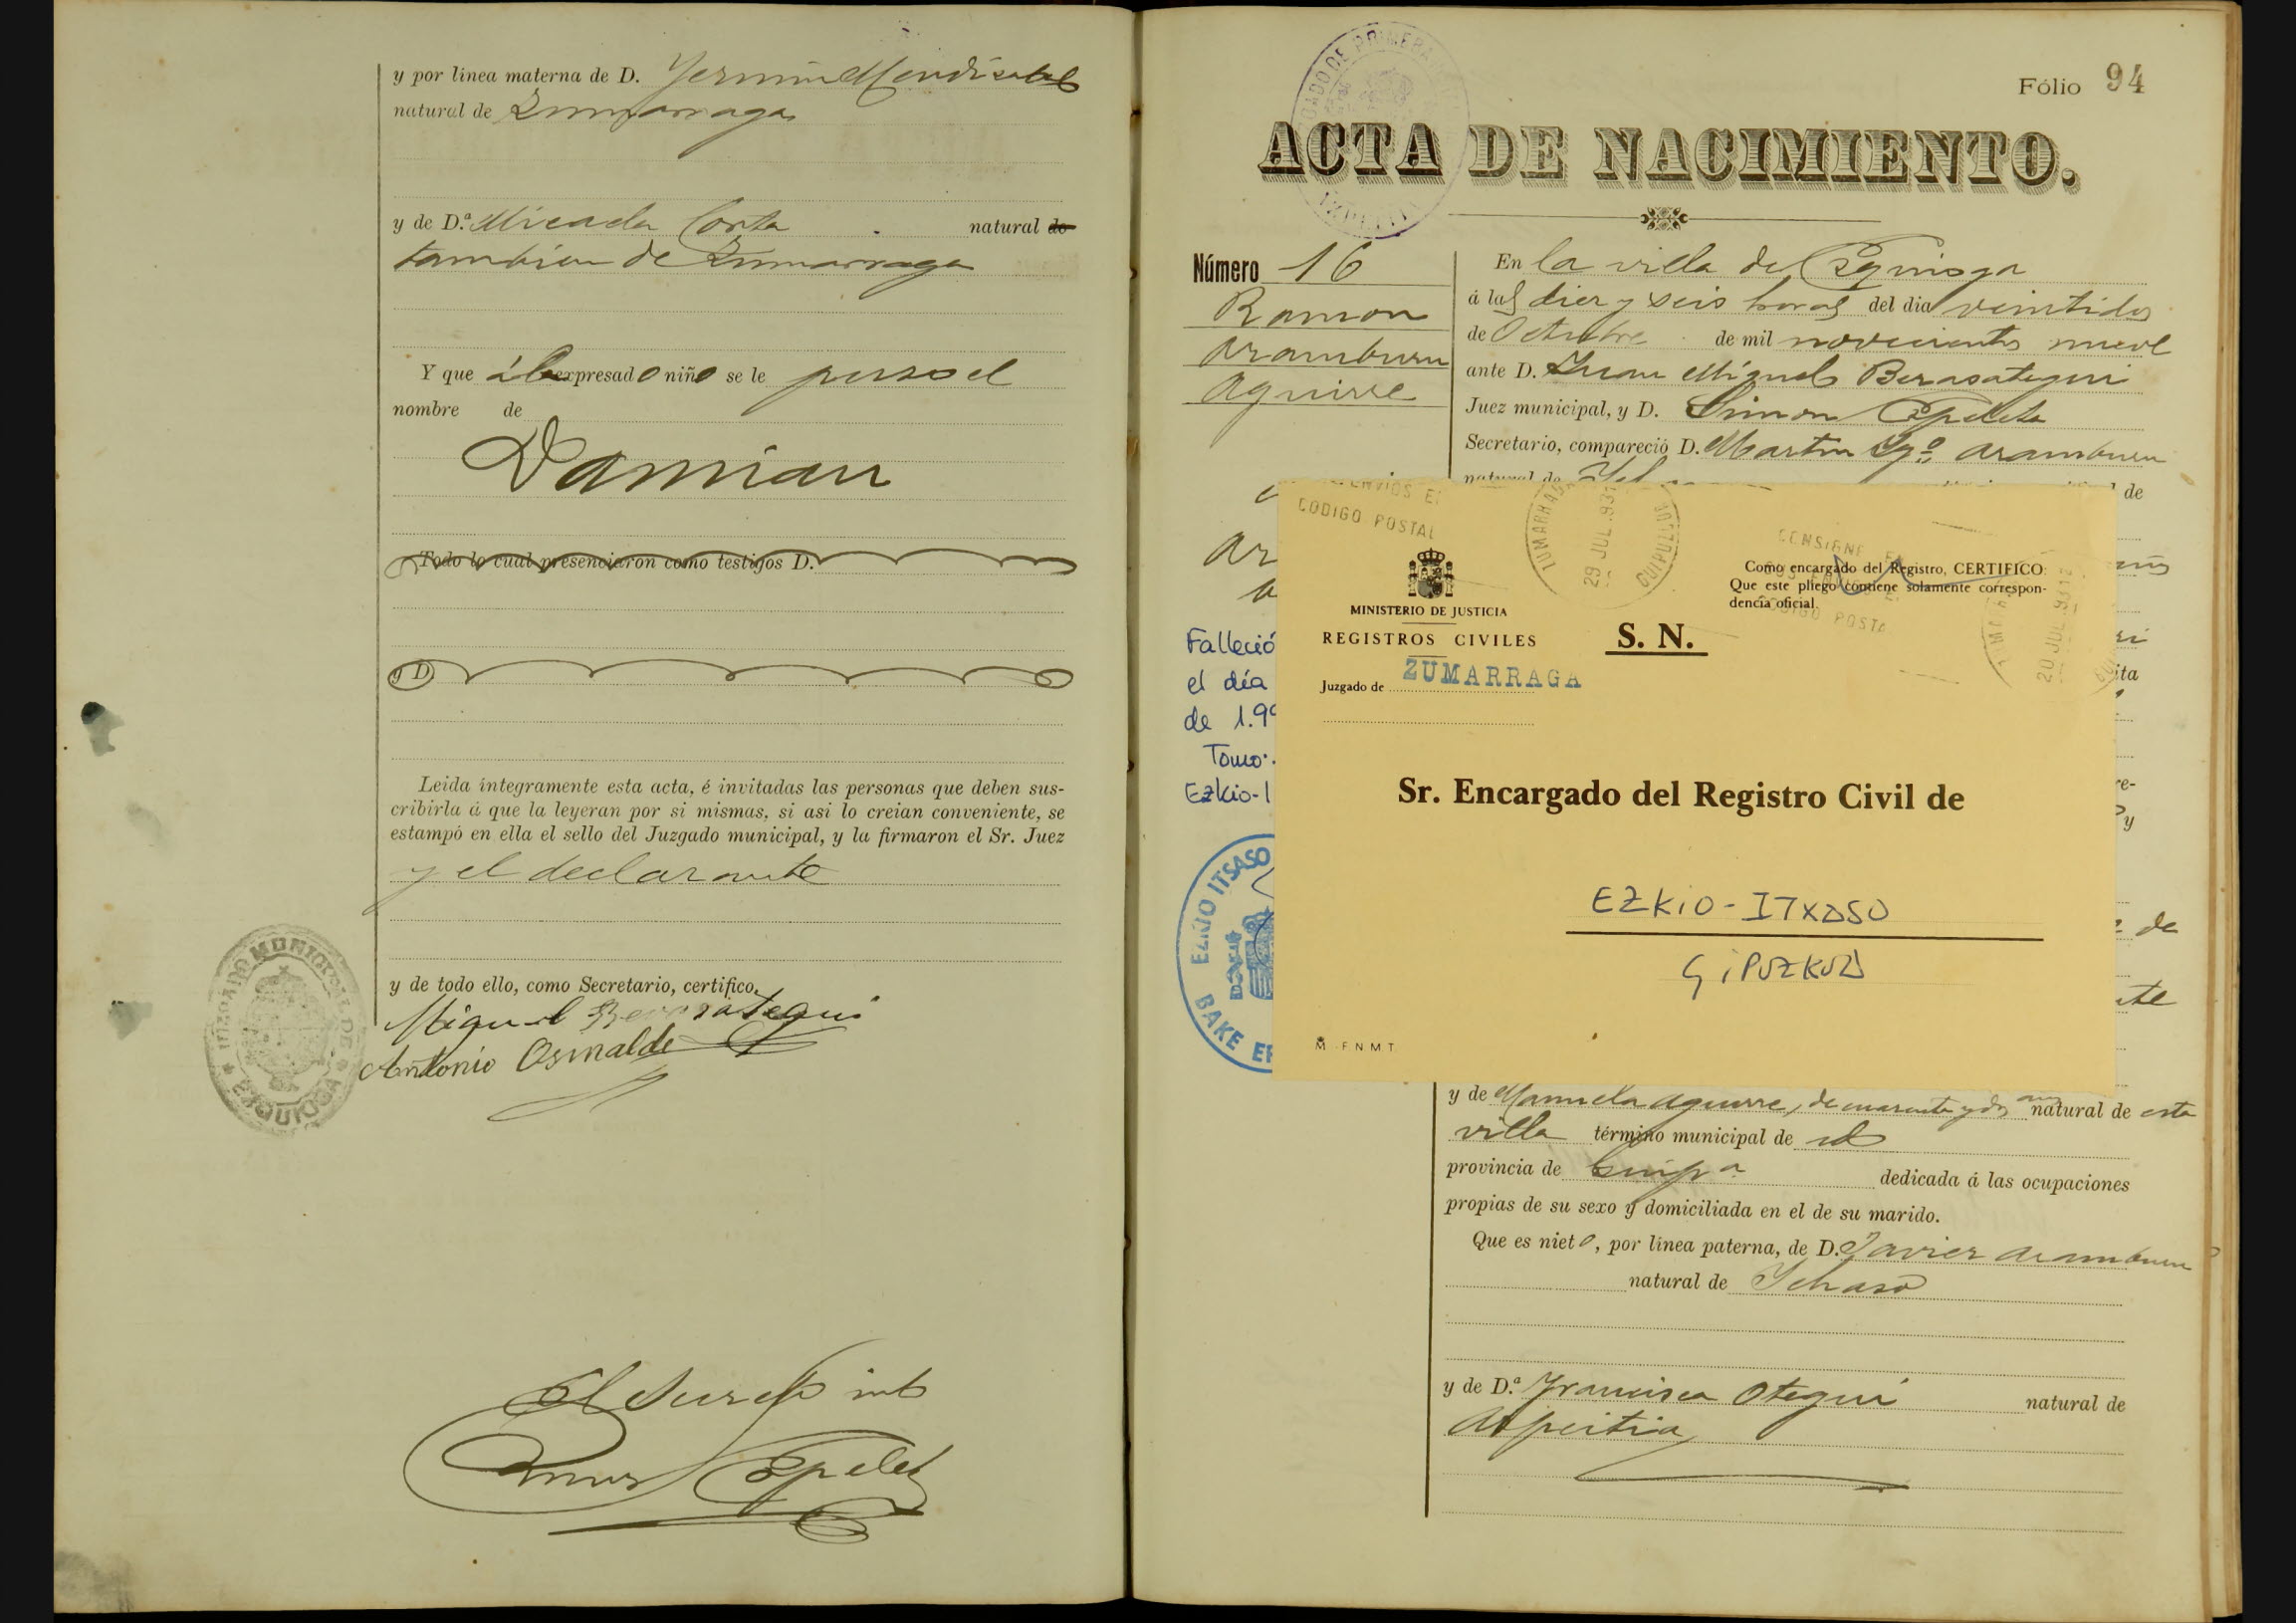 y por línea materna de D. Fermin Mendizabal
natural de Zumarraga
y de D.ª Micaela Corta natural de
tambien de Zumarraga
Y que al expresado niño se le puso el
nombre de
Damian
Todo lo cual presenciaron como testigos D.
y D.
Leida íntegramente esta acta, é invitadas las personas que deben sus-
cribirla á que la leyeran por si mismas, si asi lo creian conveniente, se
estampó en ella el sello del Juzgado municipal, y la firmaron el Sr. Juez
y el declarante
y de todo ello, como Secretario, certifico.
Miguel Berasategui
Antonio Osinalde
JUZGADO MUNICIPAL DE
EZQUIOGA
El Secret° int°
Simon Epelde
Fólio 94
JUZGADO DE PRIMERA
AZPEITIA
ACTA DE NACIMIENTO.
Número 16
Ramon
Aramburu
Aguirre
En la villa de Ezquioga
á las diez y seis horas del dia veintidos
de Octubre de mil novecientos nueve
ante D. Juan Miguel Berasategui
Juez municipal, y D. Simon Epelde
Secretario, compareció D. Martin Ig.º Aramburu
natural de
de
Falleció
el día
de 1.99
Tomo
Ezkio-I
EZKIO ITSASO
BAKE EP
ENVIOS EL
CODIGO POSTAL
ZUMARRAGA
29 JUL.931
GUIPUZCOA
CONSIGNE EN
SUS ENVIOS EL
CODIGO POSTAL
20 JUL 931
MINISTERIO DE JUSTICIA
REGISTROS CIVILES
Juzgado de ZUMARRAGA
S. N.
Como encargado del Registro, CERTIFICO:
Que este pliego contiene solamente correspon-
dencia oficial.
Sr. Encargado del Registro Civil de
EZKIO-ITXASO
GIPUZKOA
F N M T
y de Manuela Aguirre, de cuarenta y dos años natural de esta
villa término municipal de id
provincia de Guip.ª dedicada á las ocupaciones
propias de su sexo y domiciliada en el de su marido.
Que es nieto, por línea paterna, de D. Javier Aramburu
natural de Ichaso
y de D.ª Francisca Otegui natural de
Azpeitia